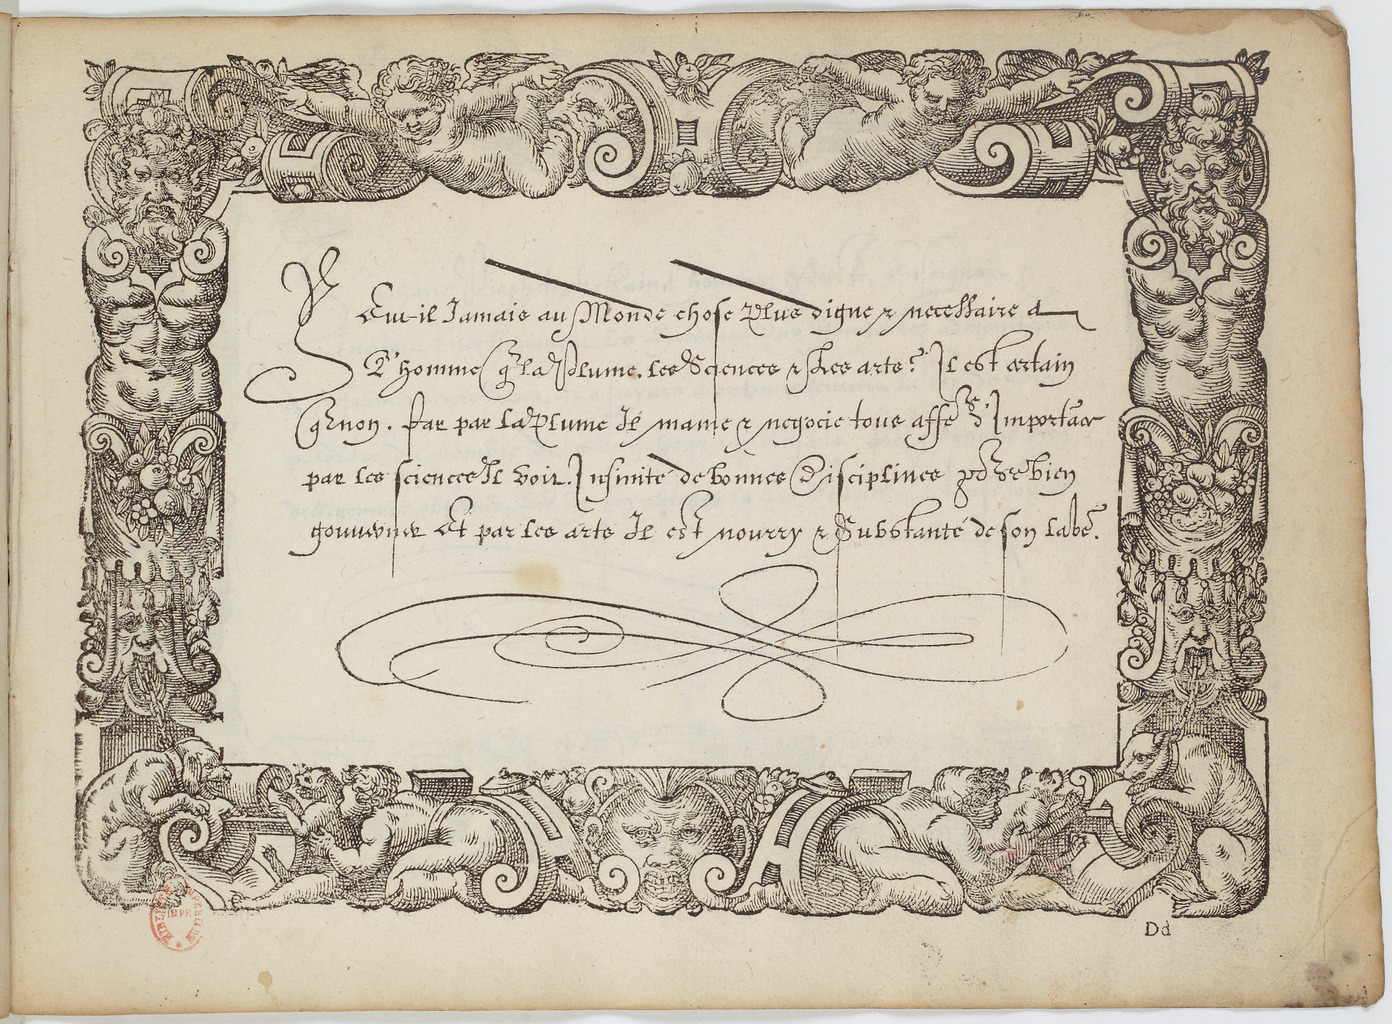 Eut-il Jamais au Monde chose Plus digne & necessaire a
L'homme q̃ la Plume, les Sciences & les arts? Il est certain
q̃ non. Car par la Plume Il manie & negocie tous affẽs d'Importãce
par les sciences Il voit Infinité de bonnes Disciplines põ se bien
gouverner Et par les arts Il est nourry & Substanté de son labẽ.
Dd